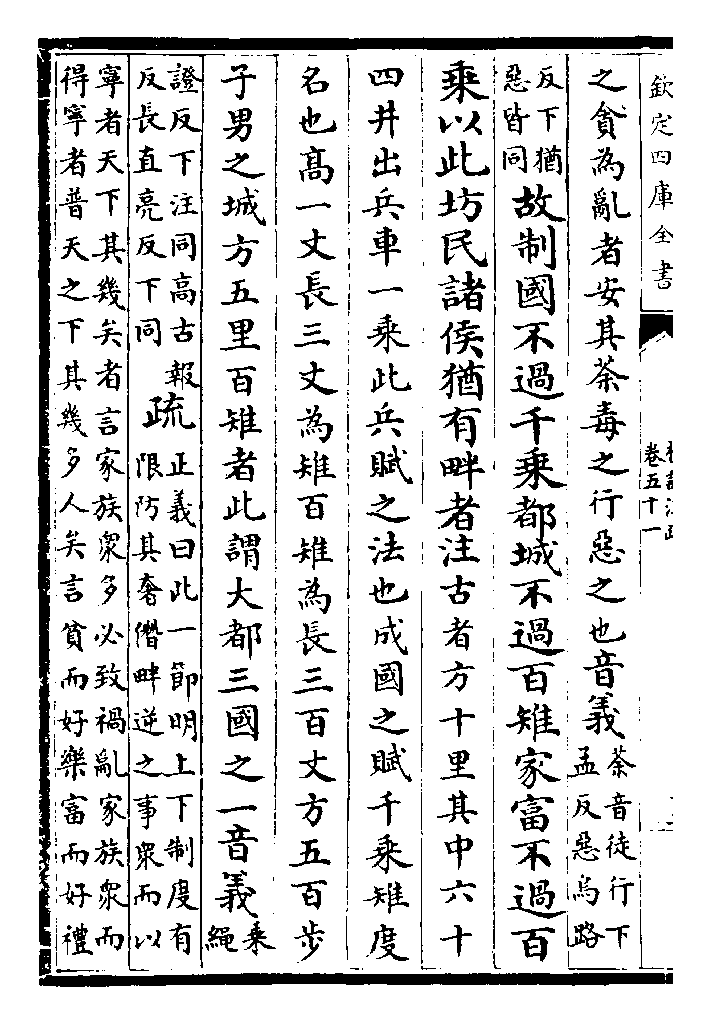 欽定四庫全書
卷五十一
之貪為亂者安其荼毒之行惡之也音義荼音徒行下
孟反惡烏路
反下猶
惡皆同故制國不過千乘都城不過百雉家富不過百
乘以此坊民諸侯猶有畔者注古者方十里其中六十
四井出兵車一乘此兵賦之法也成國之賦千乘雉度
名也高一丈長三丈為雉百雉為長三百丈方五百步
子男之城方五里百雉者此謂大都三國之一音義乘
繩
證反下注同高古報
反長直亮反下同疏正義曰此一節明上下制度有
限防其奢僭畔逆之事衆而以
寧者天下其幾矣者言家族衆多必致禍亂家族衆而
得寧者普天之下其幾多人矣言貧而好樂富而好禮